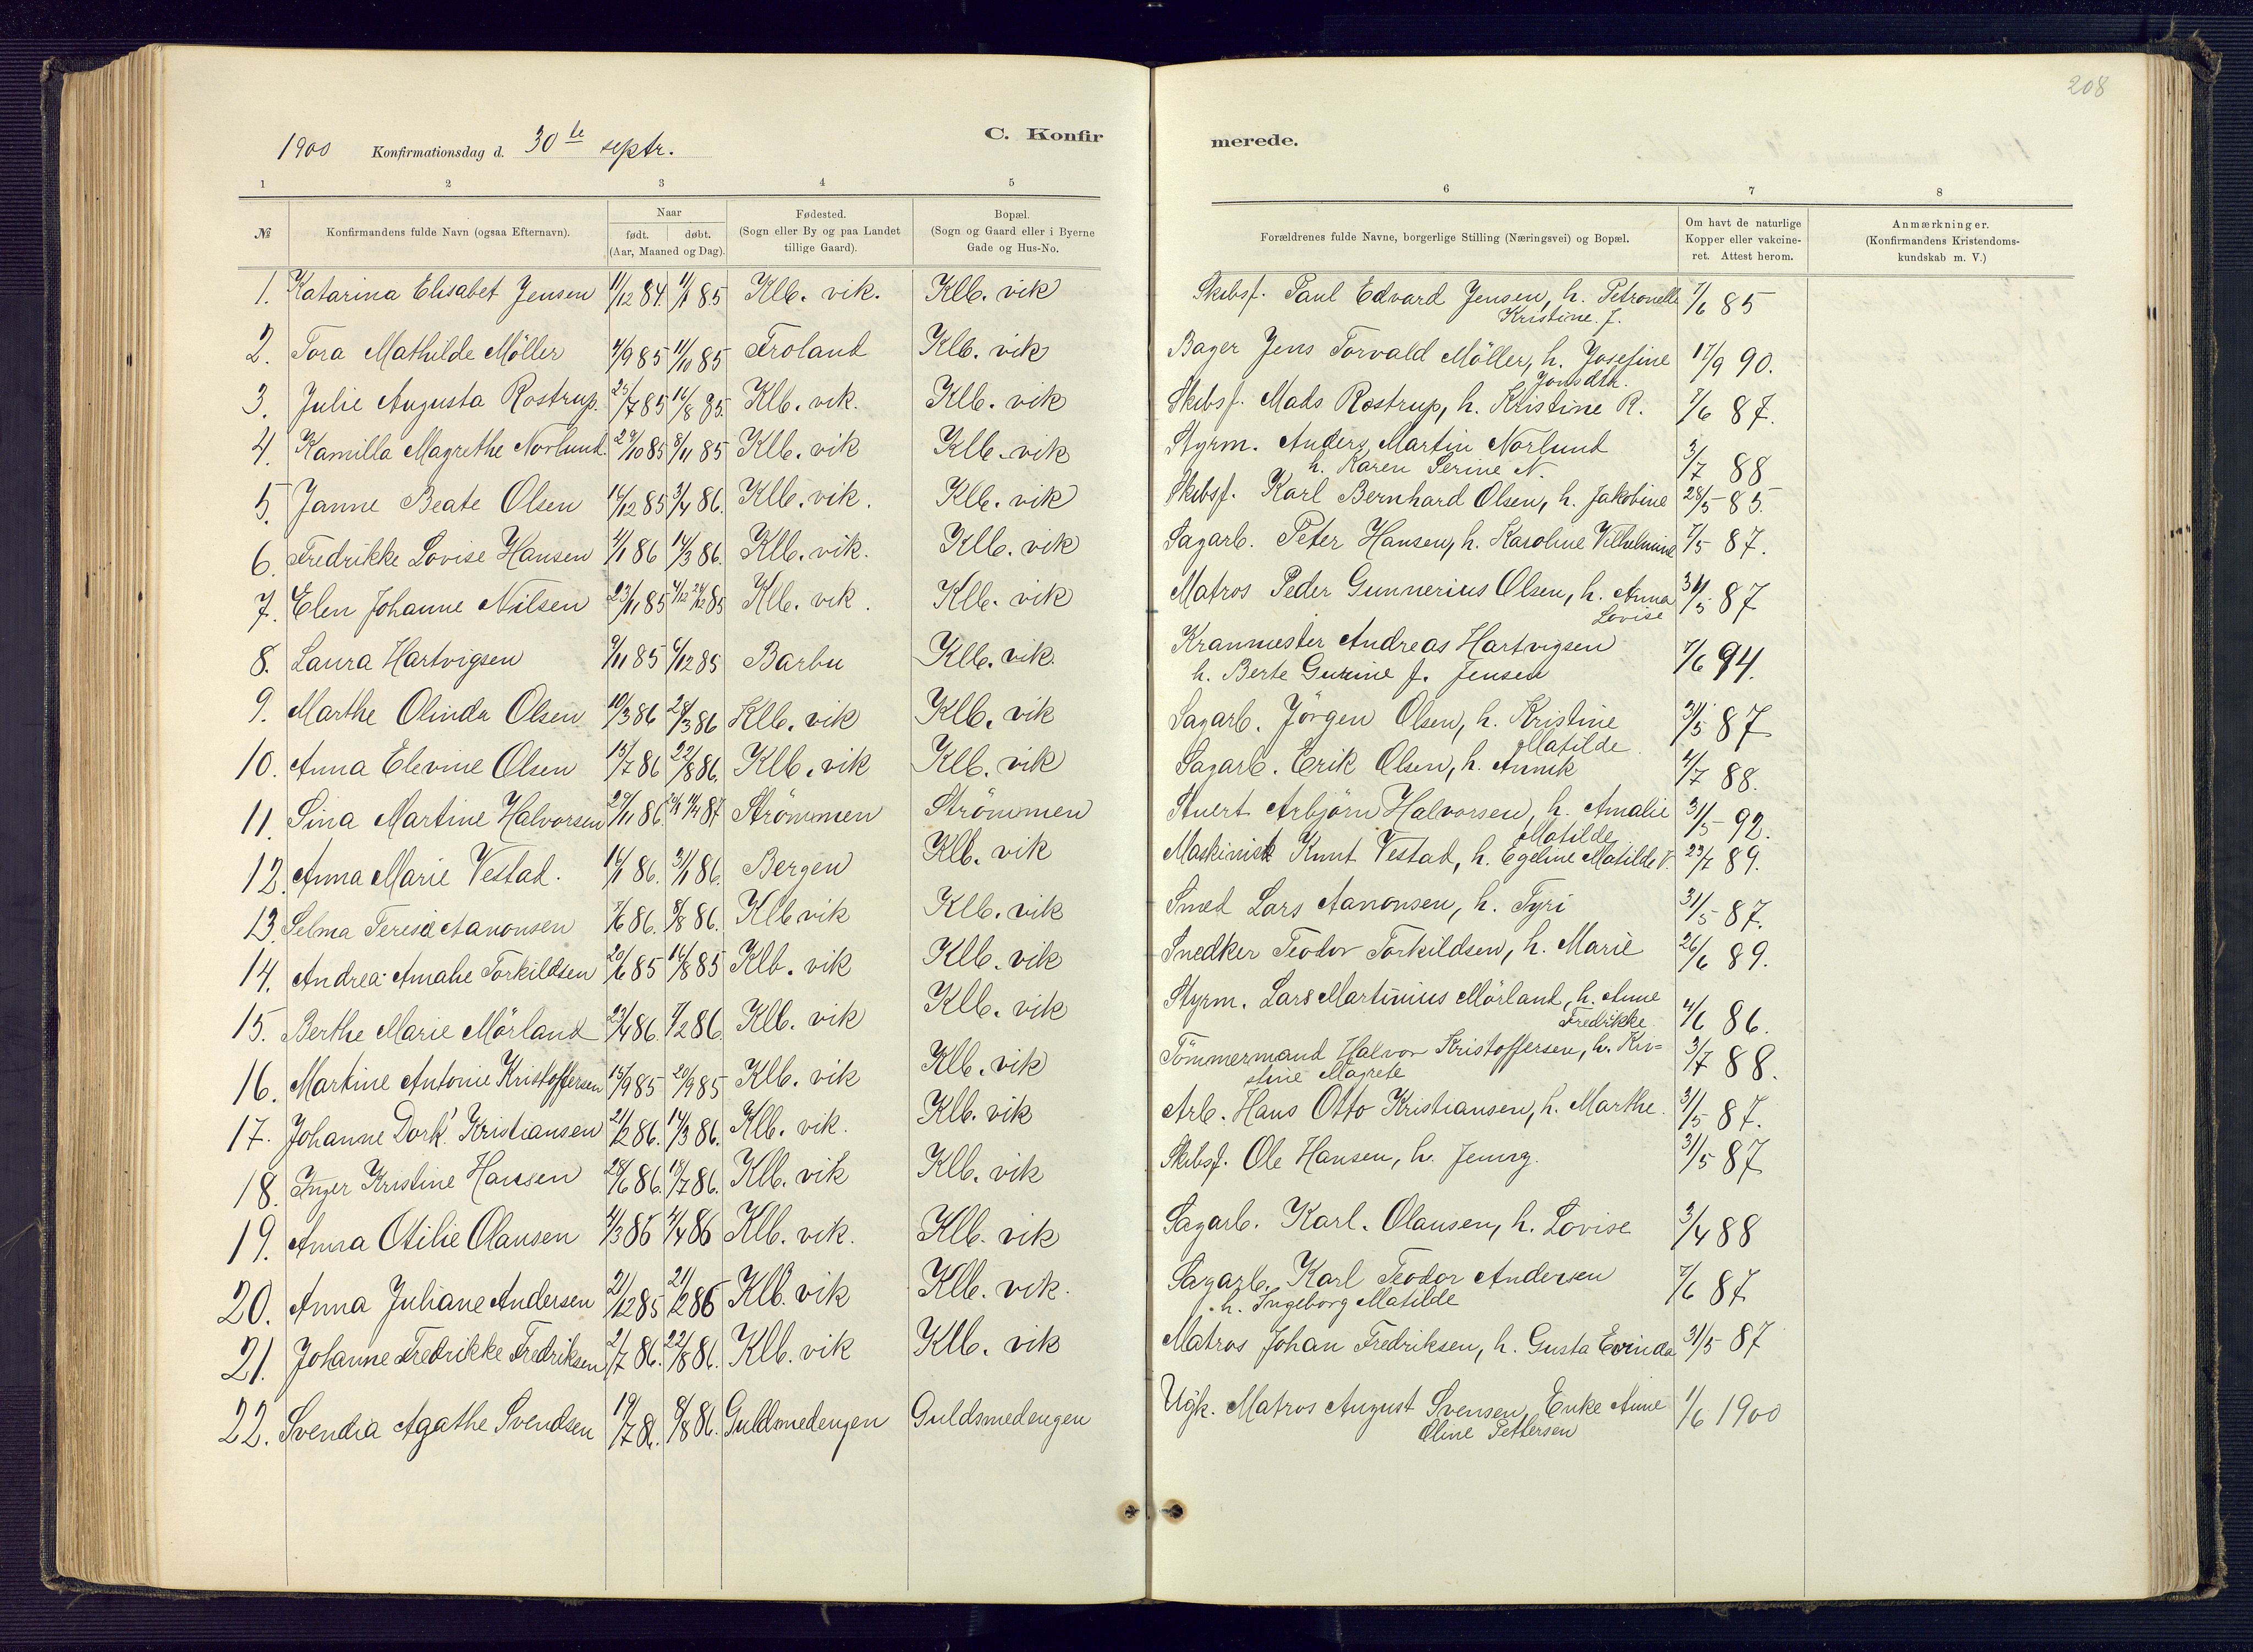 208
1900 Konfirmationsdag d. 30te septr. C. Konfirmerede.
1 2 3 4 5 6 7 8
№ Konfirmandens fulde Navn (ogsaa Efternavn). Naar født. døbt. (Aar, Maaned og Dag). Fødested. (Sogn eller By og paa Landet tillige Gaard). Bopæl. (Sogn og Gaard eller i Byerne Gade og Hus-No. Forældrenes fulde Navne, borgerlige Stilling (Næringsvei) og Bopæl. Om havt de naturlige Kopper eller vakcineret. Attest herom. Anmærkninger. (Konfirmandens Kristendomskundskab m. V.)
1. Katarina Elisabet Jensen 11/12 84. 1/1 85 Klb. vik. Klb. vik Skibsf. Paul Edvard Jensen, h. Petronelle 7/6 85
Kristine J.
2. Tora Mathilde Möller 4/9 85 11/10 85 Froland Klb. vik Bager Jens Torvald Möller, h. Josefine 17/9 90.
Jonsdtr.
3. Julie Augusta Rostrup. 25/7 85 16/8 85. Klb. vik. Klb. vik Skibsf. Mads Rostrup, h. Kristine R. 7/6 87.
4. Kamilla Magrethe Norlund. 29/10 85 8/11 85 Klb. vik Klb. vik Styrm. Anders Martin Norlund 3/7 88
h. Karen Serine N.
5. Janne Beate Olsen 14/12 85 3/4 86. Klb. vik. Klb. vik Skibsf. Karl Bernhard Olsen, h. Jakobine 28/5 85.
6. Fredrikke Lovise Hansen 4/1 86 14/3 86. Klb. vik. Klb. vik Sagarb. Peter Hansen, h. Karoline Vilhelmine 7/5 87.
7. Elen Johanne Nilsen 23/11 85 4/12 26/12 85 Klb. vik. Klb. vik Matros Peder Gunnerius Olsen, h. Anna 31/5 87
Lovise
8. Laura Hartvigsen 9/11 85 6/12 85 Barbu Klb. vik. Kranmester Andreas Hartvigsen 7/6 94.
h. Berte Gurine f. Jensen
9. Marthe Olinda Olsen 10/3 86 28/3 86 Klb. vik Klb. vik Sagarb. Jörgen Olsen, h. Kristine 31/5 87
Matilde
10. Anna Elevine Olsen 15/7 86 22/8 86. Klb. vik Klb. vik Sagarb. Erik Olsen, h. Annik 4/7 88.
11. Sina Martine Halvorsen 29/11 86. 11/4 87 Strömmen Strömmen Stuert Arbjörn Halvorsen, h. Amalie 31/5 92.
Matilde
12. Anna Marie Vestad. 16/1 86. 31/1 86. Bergen Klb. vik Maskinist Knut Vestad, h. Egeline Matilde V. 23/7 89.
13. Selma Terese Aanonsen 7/6 86. 8/8 86. Klb vik Klb. vik Smed Lars Aanonsen, h. Tyri 31/5 87.
14. Andrea Amalie Torkildsen 20/6 85 16/8 85 Klb. vik Klb. vik Snedker Teodor Torkildsen, h. Marie 26/6 89.
15. Berthe Marie Mörland 23/4 86. 7/2 86. Klb. vik Klb. vik Styrm. Lars Martinius Mörland, h. Anne 4/6 86.
Fredrikke
16. Martine Antonie Kristoffersen 15/9 85 20/9 85 Klb. vik Klb. vik Tömmermand Halvor Kristoffersen, h. Kri= 3/7 88.
stine Magrete
17. Johanne Dork. Kristiansen 21/2 86. 14/3 86. Klb. vik. Klb. vik Arb. Hans Otto Kristiansen, h. Marthe. 31/5 87.
18. Inger Kristine Hansen 28/6 86. 18/7 86. Klb. vik Klb. vik Skibsf. Ole Hansen, h. Jenny. 31/5 87
19. Anna Otilie Olausen 4/3 86 4/4 86 Klb. vik. Klb. vik Sagarb. Karl. Olausen, h. Lovise 3/4 88
20. Anna Juliane Andersen 21/12 85 21/2 86 Klb. vik Klb. vik. Sagarb. Karl Teodor Andersen 7/6 87
h. Ingeborg Matilde
21. Johanne Fredrikke Fredriksen 2/7 86. 22/8 86. Klb. vik Klb. vik Matros Johan Fredriksen, h. Gusta Evinda 31/5 87
22. Svendia Agathe Svendsen 19/7 86. 8/8 86. Guldsmedengen Guldsmedengen Ugk. Matros August Svensen, Enke Anne 1/6 1900
Oline Pettersen